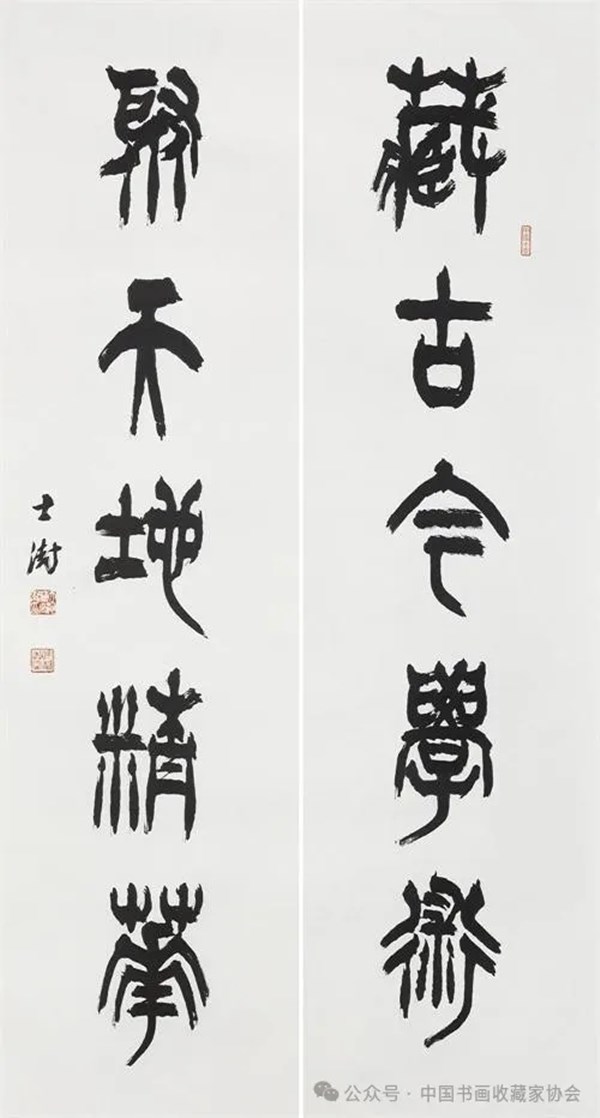 藏古今學術
聚天地精華
士澍
公众号 · 中国书画收藏家协会